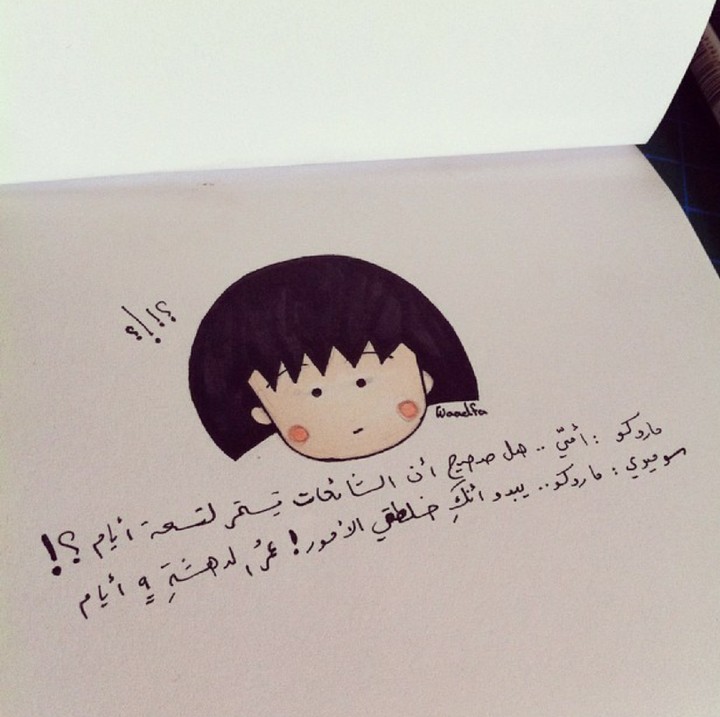 ؟!/!؟
waadfa
ماروكو : أمّي .. هل صحيح أن الشائعات تستمر لتسعة أيام ؟!
سوميري : ماروكو .. يبدو أنكِ خلطتي الأمور! عمرُ الدهشةِ ٩ أيام